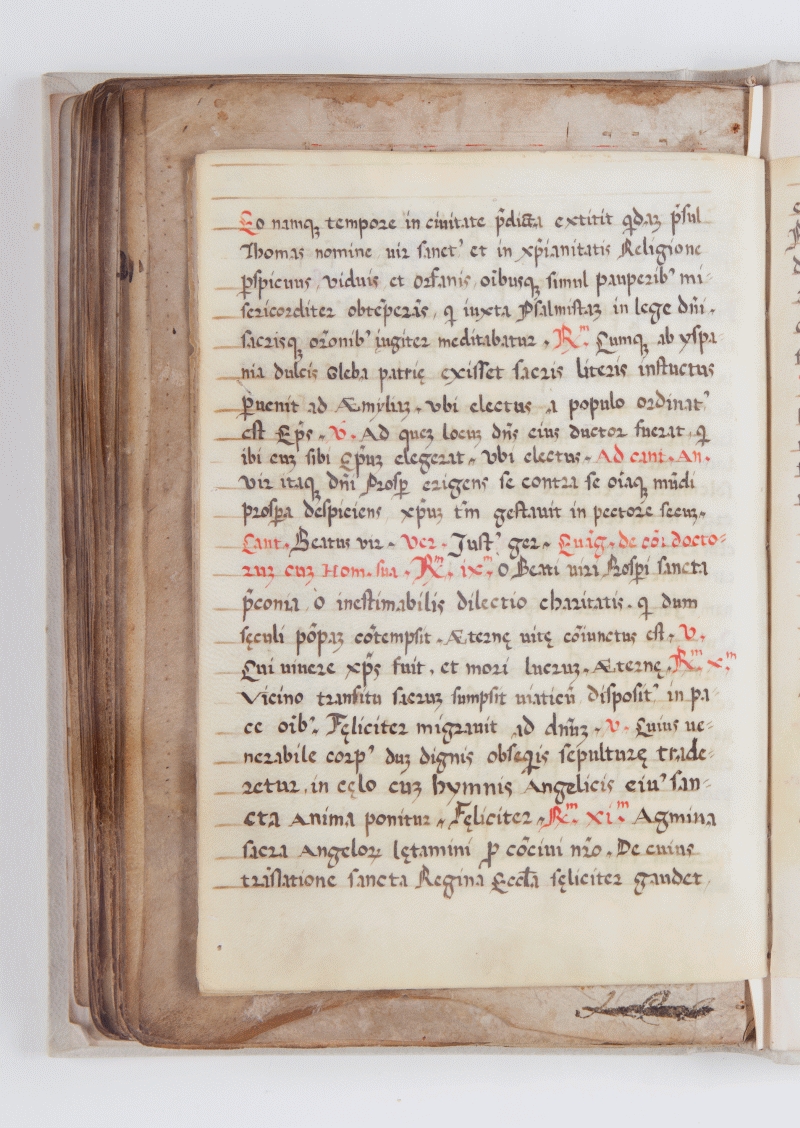 Eo namq; tempore in ciuitate p̄dicta extitit q̄daz p̄sul
Thomas nomine uir sanct' et in xp̄ianitatis Religione
p̱spicuus, viduis et Orfanis, oībusq; simul pauperib' mi-
sericorditer obtēperās, q̄ iuxta Psalmistaz in lege dn̄i,
sacrisq; orōnib' iugiter meditabatur. R.m Cumq; ab yspa-
nia dulcis Gleba patrię exisset sacris literis instuctus
p̱uenit ad Æmiliaz, vbi electus a populo ordinat'
est Ep̄s. V. Ad quez locuz dn̄s eius ductor fuerat, q̄
ibi euz sibi Ep̄uz elegerat, vbi electus. Ad cant. An.
vir itaq; dn̄i Prosp̱ erigens se contra se oīaq; mūdi
prosp̱a despiciens xp̄uz tm̄ gestauit in pectore secuz.
Cant. Beatus vir. Ver. Just' ger. Euāg. de cōi docto-
ruz cuz Hom. sua. R.m ix.m O Beati uiri Prosp̱i sancta
p̄conia, O inestimabilis dilectio charitatis, q̄ dum
sęculi pōpaz cōtempsit, Æternę uitę cōiunctus est. V.
Cui uiuere xp̄s fuit, et mori lucruz, Æternę. R.m x.m
Vicino transitu sacruz sumpsit uiaticū disposit' in pa-
ce oīb'. Fęliciter migrauit ad dn̄uz. V. Cuius ue-
nerabile corp' duz dignis obseq̄is sepulturę trade-
retur, in cęlo cuz hymnis Angelicis eiu' san-
cta Anima ponitur, Fęliciter. R.m xi.m Agmina
sacra Angeloꝝ lętamini p̱ cōciui nr̄o. De cuius
trāslatione sancta Regina Eccl̄a fęliciter gaudet,